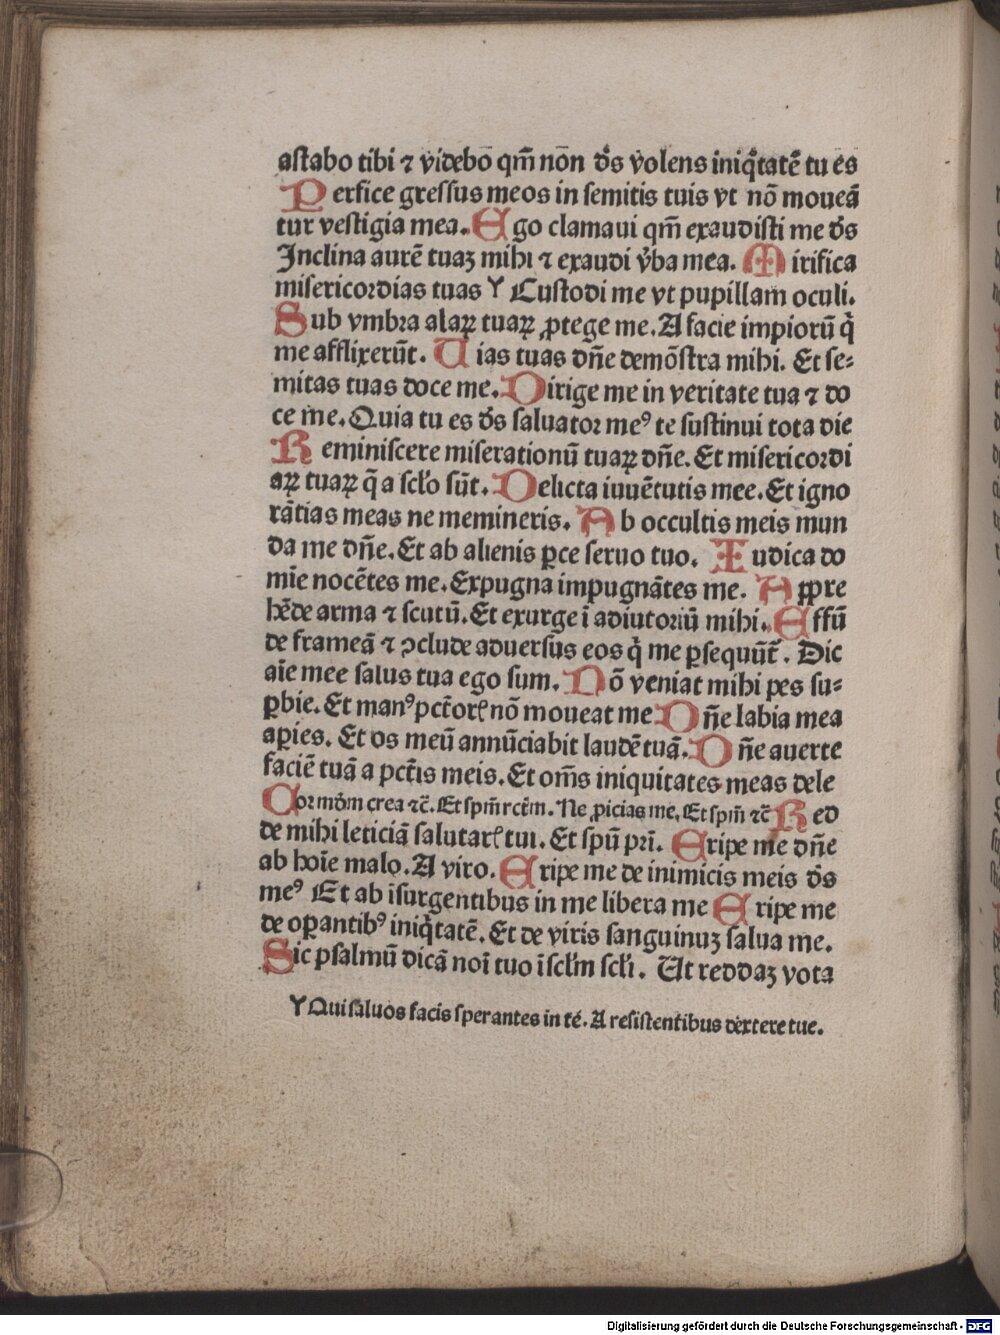 astabo tibi ⁊ videbo qm̄ nōn d̄s volens iniq̄tatē tu es
Perfice gressus meos in semitis tuis vt nō moueā
tur vestigia mea. Ego clamaui qm̄ exaudisti me d̄s
Inclina aurē tuaꝫ mihi ⁊ exaudi v̄ba mea. Mirifica
misericordias tuas Y Custodi me vt pupillam oculi.
Sub vmbra alaꝝ tuaꝝ ꝓtege me. A facie impiorū q̄
me afflixerūt. Uias tuas dn̄e demōstra mihi. Et se-
mitas tuas doce me. Dirige me in veritate tua ⁊ do
ce me. Quia tu es d̄s saluator meꝰ te sustinui tota die
Reminiscere miserationū tuaꝝ dn̄e. Et misericordi
aꝝ tuaꝝ q̄ a scl̄o sūt. Delicta iuuētutis mee. Et igno
rātias meas ne memineris. Ab occultis meis mun
da me dn̄e. Et ab alienis ꝑce seruo tuo. Iudica do
mīe nocētes me. Expugna impugnātes me. Appre
hēde arma ⁊ scutū. Et exurge ī adiutoriū mihi. Effū
de frameā ⁊ ꝯclude aduersus eos q̄ me ꝑsequūt᷑. Dic
aīe mee salus tua ego sum. Nō veniat mihi pes su-
ꝑbie. Et manꝰ pctōrꝭ nō moueat me Dn̄e labia mea
aꝑies. Et os meū annūciabit laudē tuā. Dn̄e auerte
faciē tuā a pctīs meis. Et om̄s iniquitates meas dele
Cor mōm crea ⁊c̄. Et spm̄ rctm̄. Ne ꝓicias me. Et spm̄ ⁊c̄ Red
de mihi leticiā salutarꝭ tui. Et spū pri̅. Eripe me dn̄e
ab hoīe malo. A viro. Eripe me de inimicis meis d̄s
meꝰ Et ab īsurgentibus in me libera me Eripe me
de oꝑantibꝰ iniq̄tatē. Et de viris sanguinuꝫ salua me.
Sic psalmū dicā noī tuo ī scl̄m scl̄i. Ut reddaꝫ vota
Y Qui saluos facis sperantes in te. A resistentibus dextere tue.
Digitalisierung gefördert durch die Deutsche Forschungsgemeinschaft - DFG